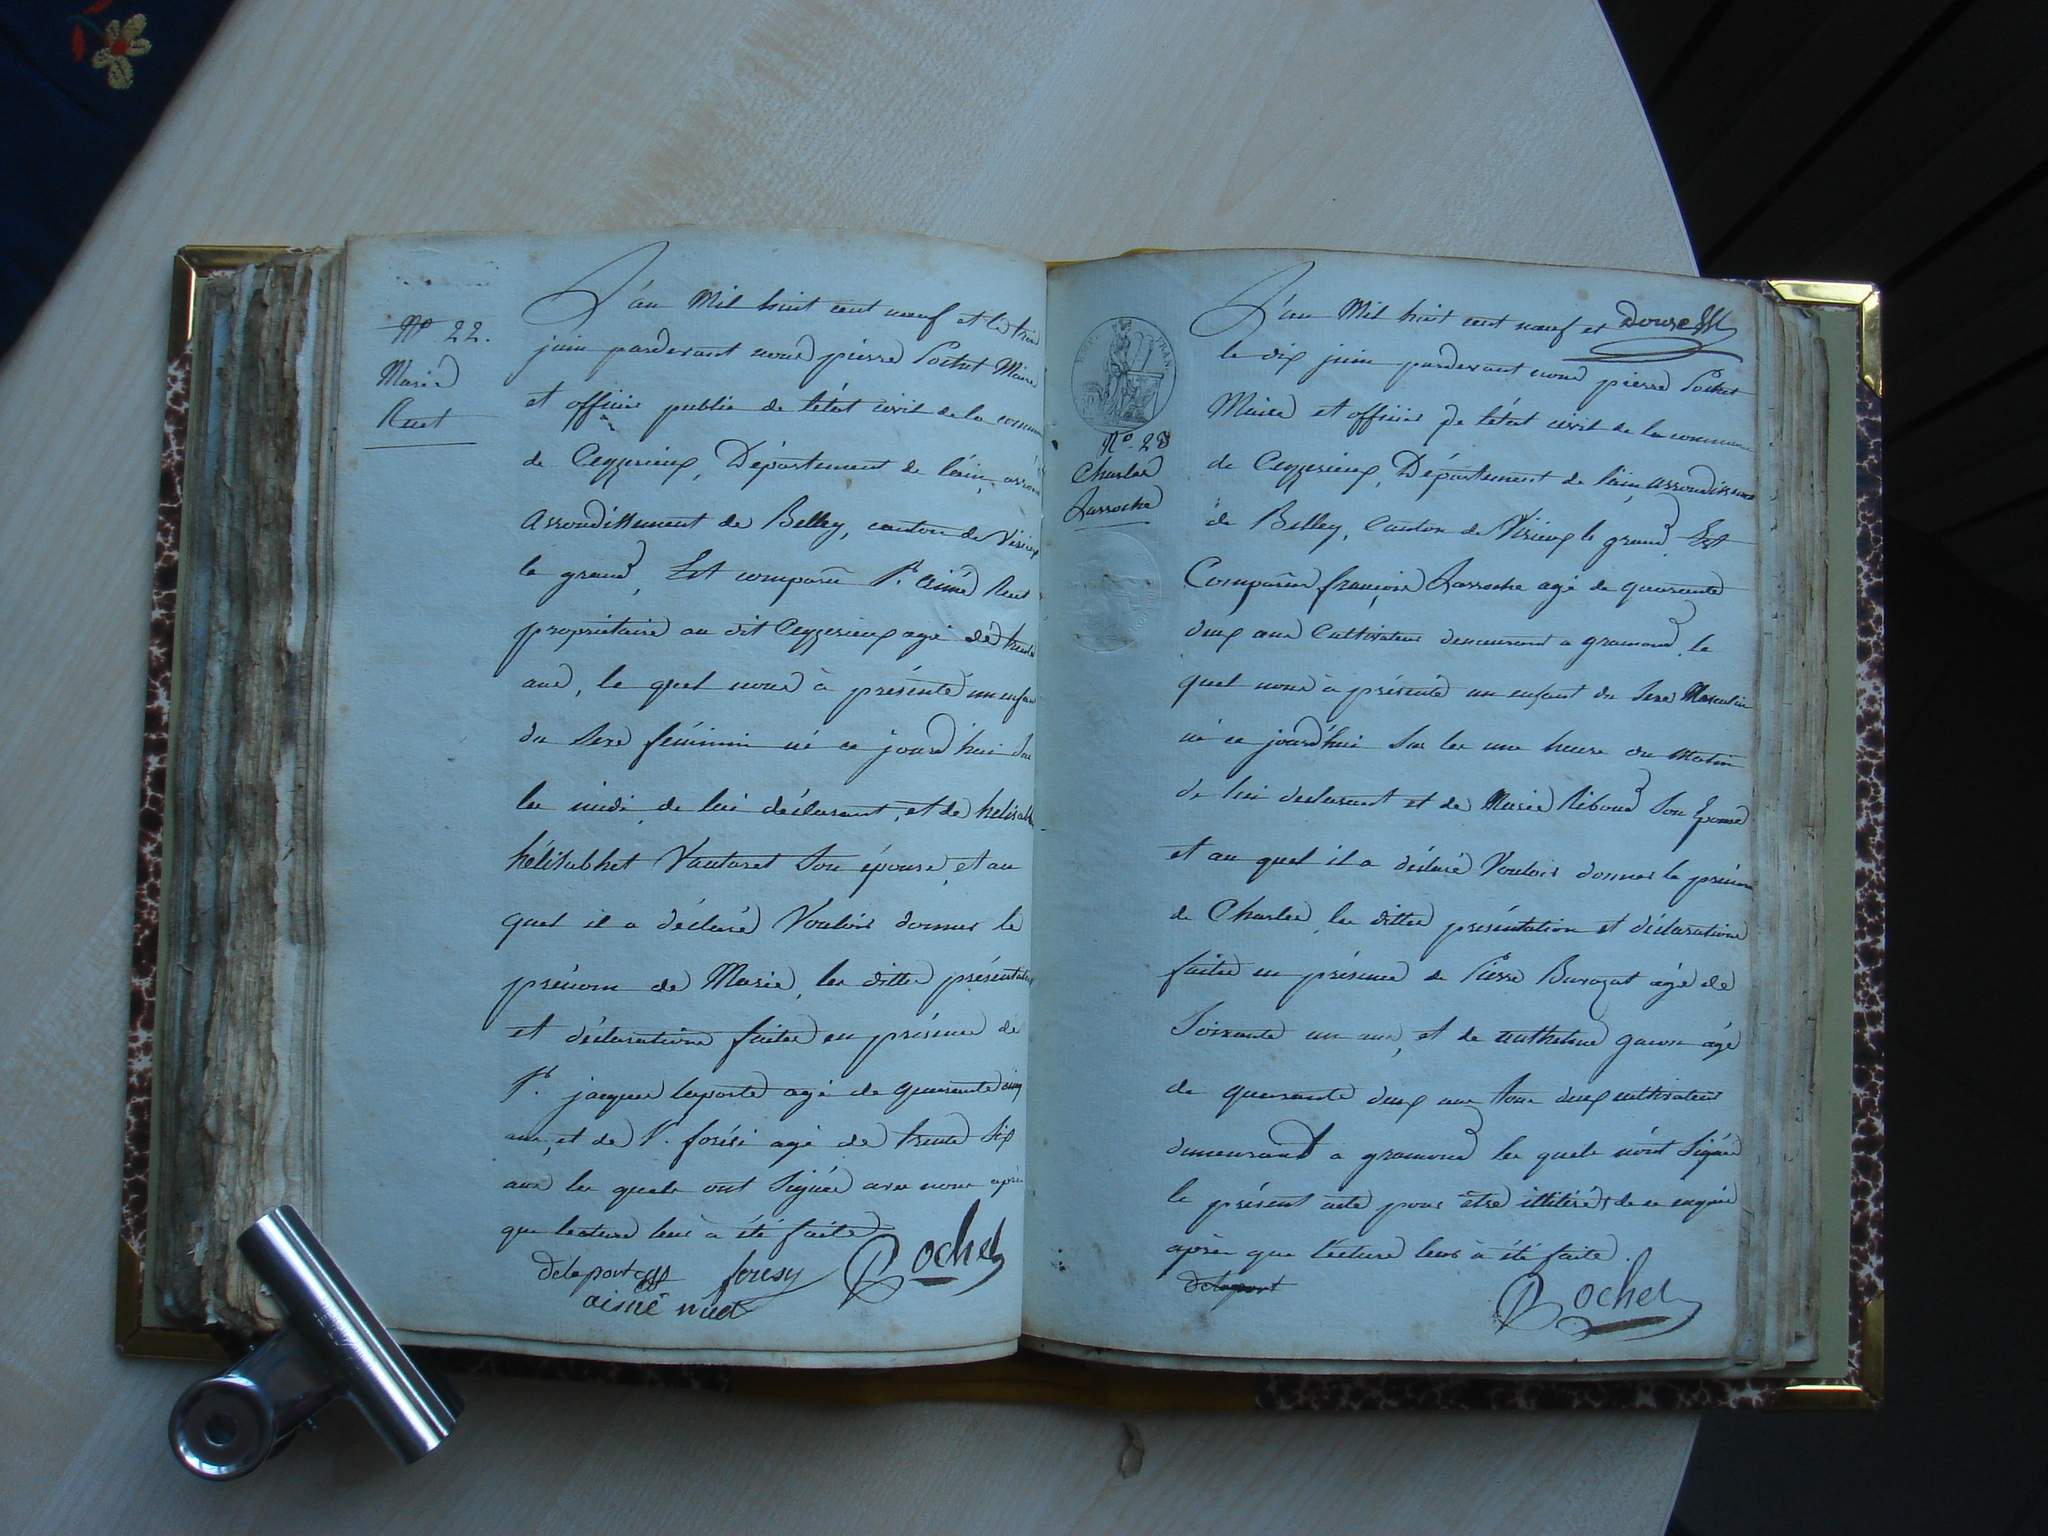 N° 22.
Marie
Ruet
L'an Mil huit cent neuf et le trois
juin pardevant nous pierre Pochet Maire
et officier public de l'état civil de la commune
de Ceyzerieux, Département de l'ain,
Arrondissement de Belley, canton de Virieux
le grand, Est comparu Sr. Aimé Ruet
propriétaire au dit Ceyzerieux agé de trente
ans, le quel nous à présenté un enfant
du Sexe féminin né ce jourd'hui Sur
les midi, de lui déclarant, et de
hélisabhet Vautaret Son épouse, et au
quel il a déclaré Vouloir donner le
prénom de Marie, les dittes présentation
et déclarations faites en présence de
Sr. jacques laporte agé de quarante cinq
ans, et de forési agé de trente Six
ans les quels ont Signés avec nous après
que lecture leur à été faite
delaporte foresy Pochet
aimé ruet
REP. FRAN.
N° 23
Charles
Larroche
L'an Mil huit cent neuf et Douze
le dix juin pardevant nous pierre Pochet
Maire et officier de l'état civil de la commune
de Ceyzerieux, Département de l'ain, arrondissement
de Belley, Canton de Virieux le grand, Est
Comparu françois Larroche agé de quarante
deux ans Cultivateur demeurant a gramond, le
quel nous à présenté un enfant du Sexe Masculin
né ce jourd'hui Sur les une heure du matin
de lui declarant et de Marie Riboud Son Epouse
et au quel il a déclaré Vouloir donner le prénom
de Charles, les dittes présentation et déclarations
faites en présence de Pierre Burozat agé de
Soixante un ans, et de anthelme gacon agé
de quarante deux ans tous deux cultivateurs
demeurant a gramond les quels n'ont Signés
le présent acte pour être illitérés de ce enquis
après que Lecture leur à été faite.
delaport
Pochet